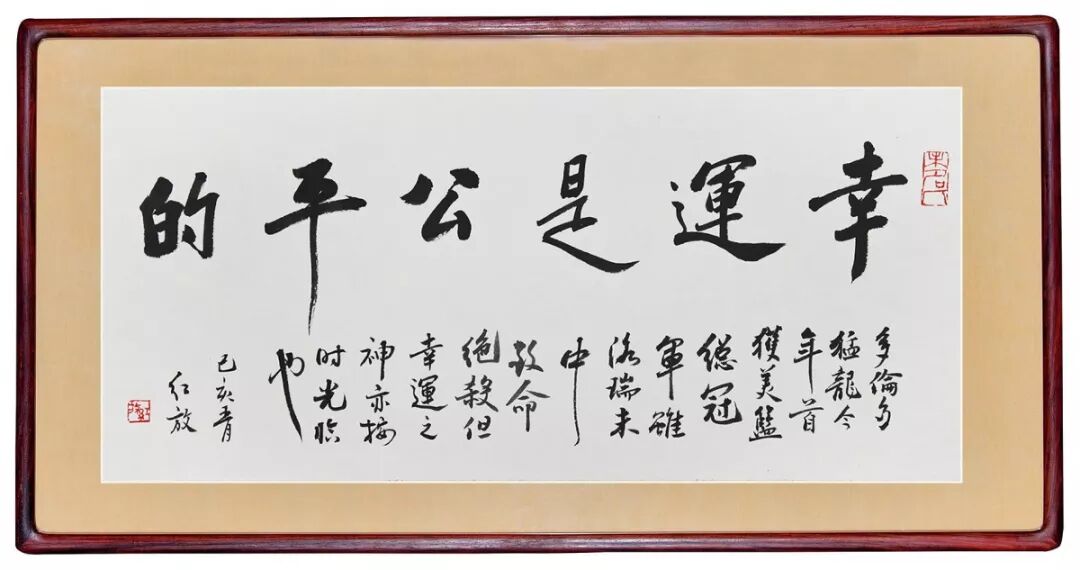 幸運是公平的
多倫多
猛龍今
年首
獲美籃
總冠
軍雖
洛瑞未
中
致命
絕殺但
幸運之
神亦按
时光临
也
己亥青
红放